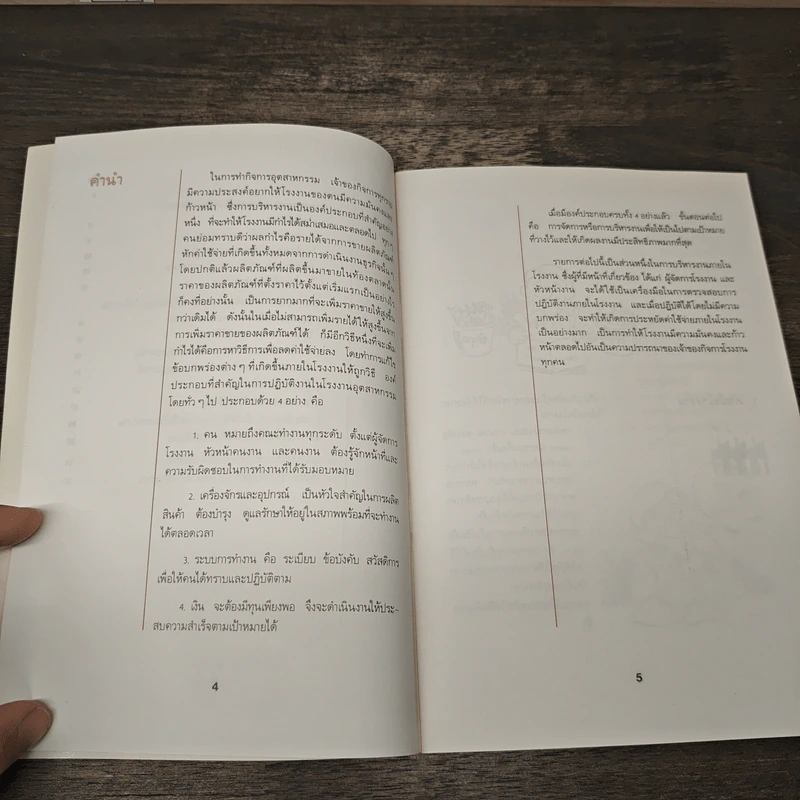 คำนำ
ในการทำกิจการอุตสาหกรรม เจ้าของกิจการทุกท่าน
มีความประสงค์อยากให้โรงงานของตนมีความมั่นคงและ
ก้าวหน้า ซึ่งการบริหารงานเป็นองค์ประกอบที่สำคัญอย่าง
หนึ่ง ที่จะทำให้โรงงานมีกำไรได้สม่ำเสมอและตลอดไป ทุก ๆ
คนย่อมทราบดีว่าผลกำไรคือรายได้จากการขายผลิตภัณฑ์
หักค่าใช้จ่ายที่เกิดขึ้นทั้งหมดจากการดำเนินงานธุรกิจนั้น ๆ
โดยปกติแล้วผลิตภัณฑ์ที่ผลิตขึ้นมาขายในท้องตลาดนั้น
ราคาของผลิตภัณฑ์ที่ตั้งราคาไว้ตั้งแต่เริ่มแรกเป็นอย่างไร
ก็คงที่อย่างนั้น เป็นการยากมากที่จะเพิ่มราคาขายให้สูงขึ้น
กว่าเดิมได้ ดังนั้นในเมื่อไม่สามารถเพิ่มรายได้ให้สูงขึ้นจาก
การเพิ่มราคาขายของผลิตภัณฑ์ได้ ก็มีอีกวิธีหนึ่งที่จะเพิ่ม
กำไรได้คือการหาวิธีการเพื่อลดค่าใช้จ่ายลง โดยทำการแก้ไข
ข้อบกพร่องต่าง ๆ ที่เกิดขึ้นภายในโรงงานให้ถูกวิธี องค์
ประกอบที่สำคัญในการปฏิบัติงานในโรงงานอุตสาหกรรม
โดยทั่ว ๆ ไป ประกอบด้วย 4 อย่าง คือ
1. คน หมายถึงคณะทำงานทุกระดับ ตั้งแต่ผู้จัดการ
โรงงาน หัวหน้าคนงาน และคนงาน ต้องรู้จักหน้าที่และ
ความรับผิดชอบในการทำงานที่ได้รับมอบหมาย
2. เครื่องจักรและอุปกรณ์ เป็นหัวใจสำคัญในการผลิต
สินค้า ต้องบำรุง ดูแลรักษาให้อยู่ในสภาพพร้อมที่จะทำงาน
ได้ตลอดเวลา
3. ระบบการทำงาน คือ ระเบียบ ข้อบังคับ สวัสดิการ
เพื่อให้คนได้ทราบและปฏิบัติตาม
4. เงิน จะต้องมีทุนเพียงพอ จึงจะดำเนินงานให้ประ-
สบความสำเร็จตามเป้าหมายได้
4
เมื่อมีองค์ประกอบครบทั้ง 4 อย่างแล้ว ขั้นตอนต่อไป
คือ การจัดการหรือการบริหารงานเพื่อให้เป็นไปตามเป้าหมาย
ที่วางไว้และให้เกิดผลงานมีประสิทธิภาพมากที่สุด
รายการต่อไปนี้เป็นส่วนหนึ่งในการบริหารงานภายใน
โรงงาน ซึ่งผู้ที่มีหน้าที่เกี่ยวข้อง ได้แก่ ผู้จัดการโรงงาน และ
หัวหน้างาน จะได้ใช้เป็นเครื่องมือในการตรวจสอบการ
ปฏิบัติงานภายในโรงงาน และเมื่อปฏิบัติได้โดยไม่มีความ
บกพร่อง จะทำให้เกิดการประหยัดค่าใช้จ่ายภายในโรงงาน
เป็นอย่างมาก เป็นการทำให้โรงงานมีความมั่นคงและก้าว
หน้าตลอดไปอันเป็นความปรารถนาของเจ้าของกิจการโรงงาน
ทุกคน
5